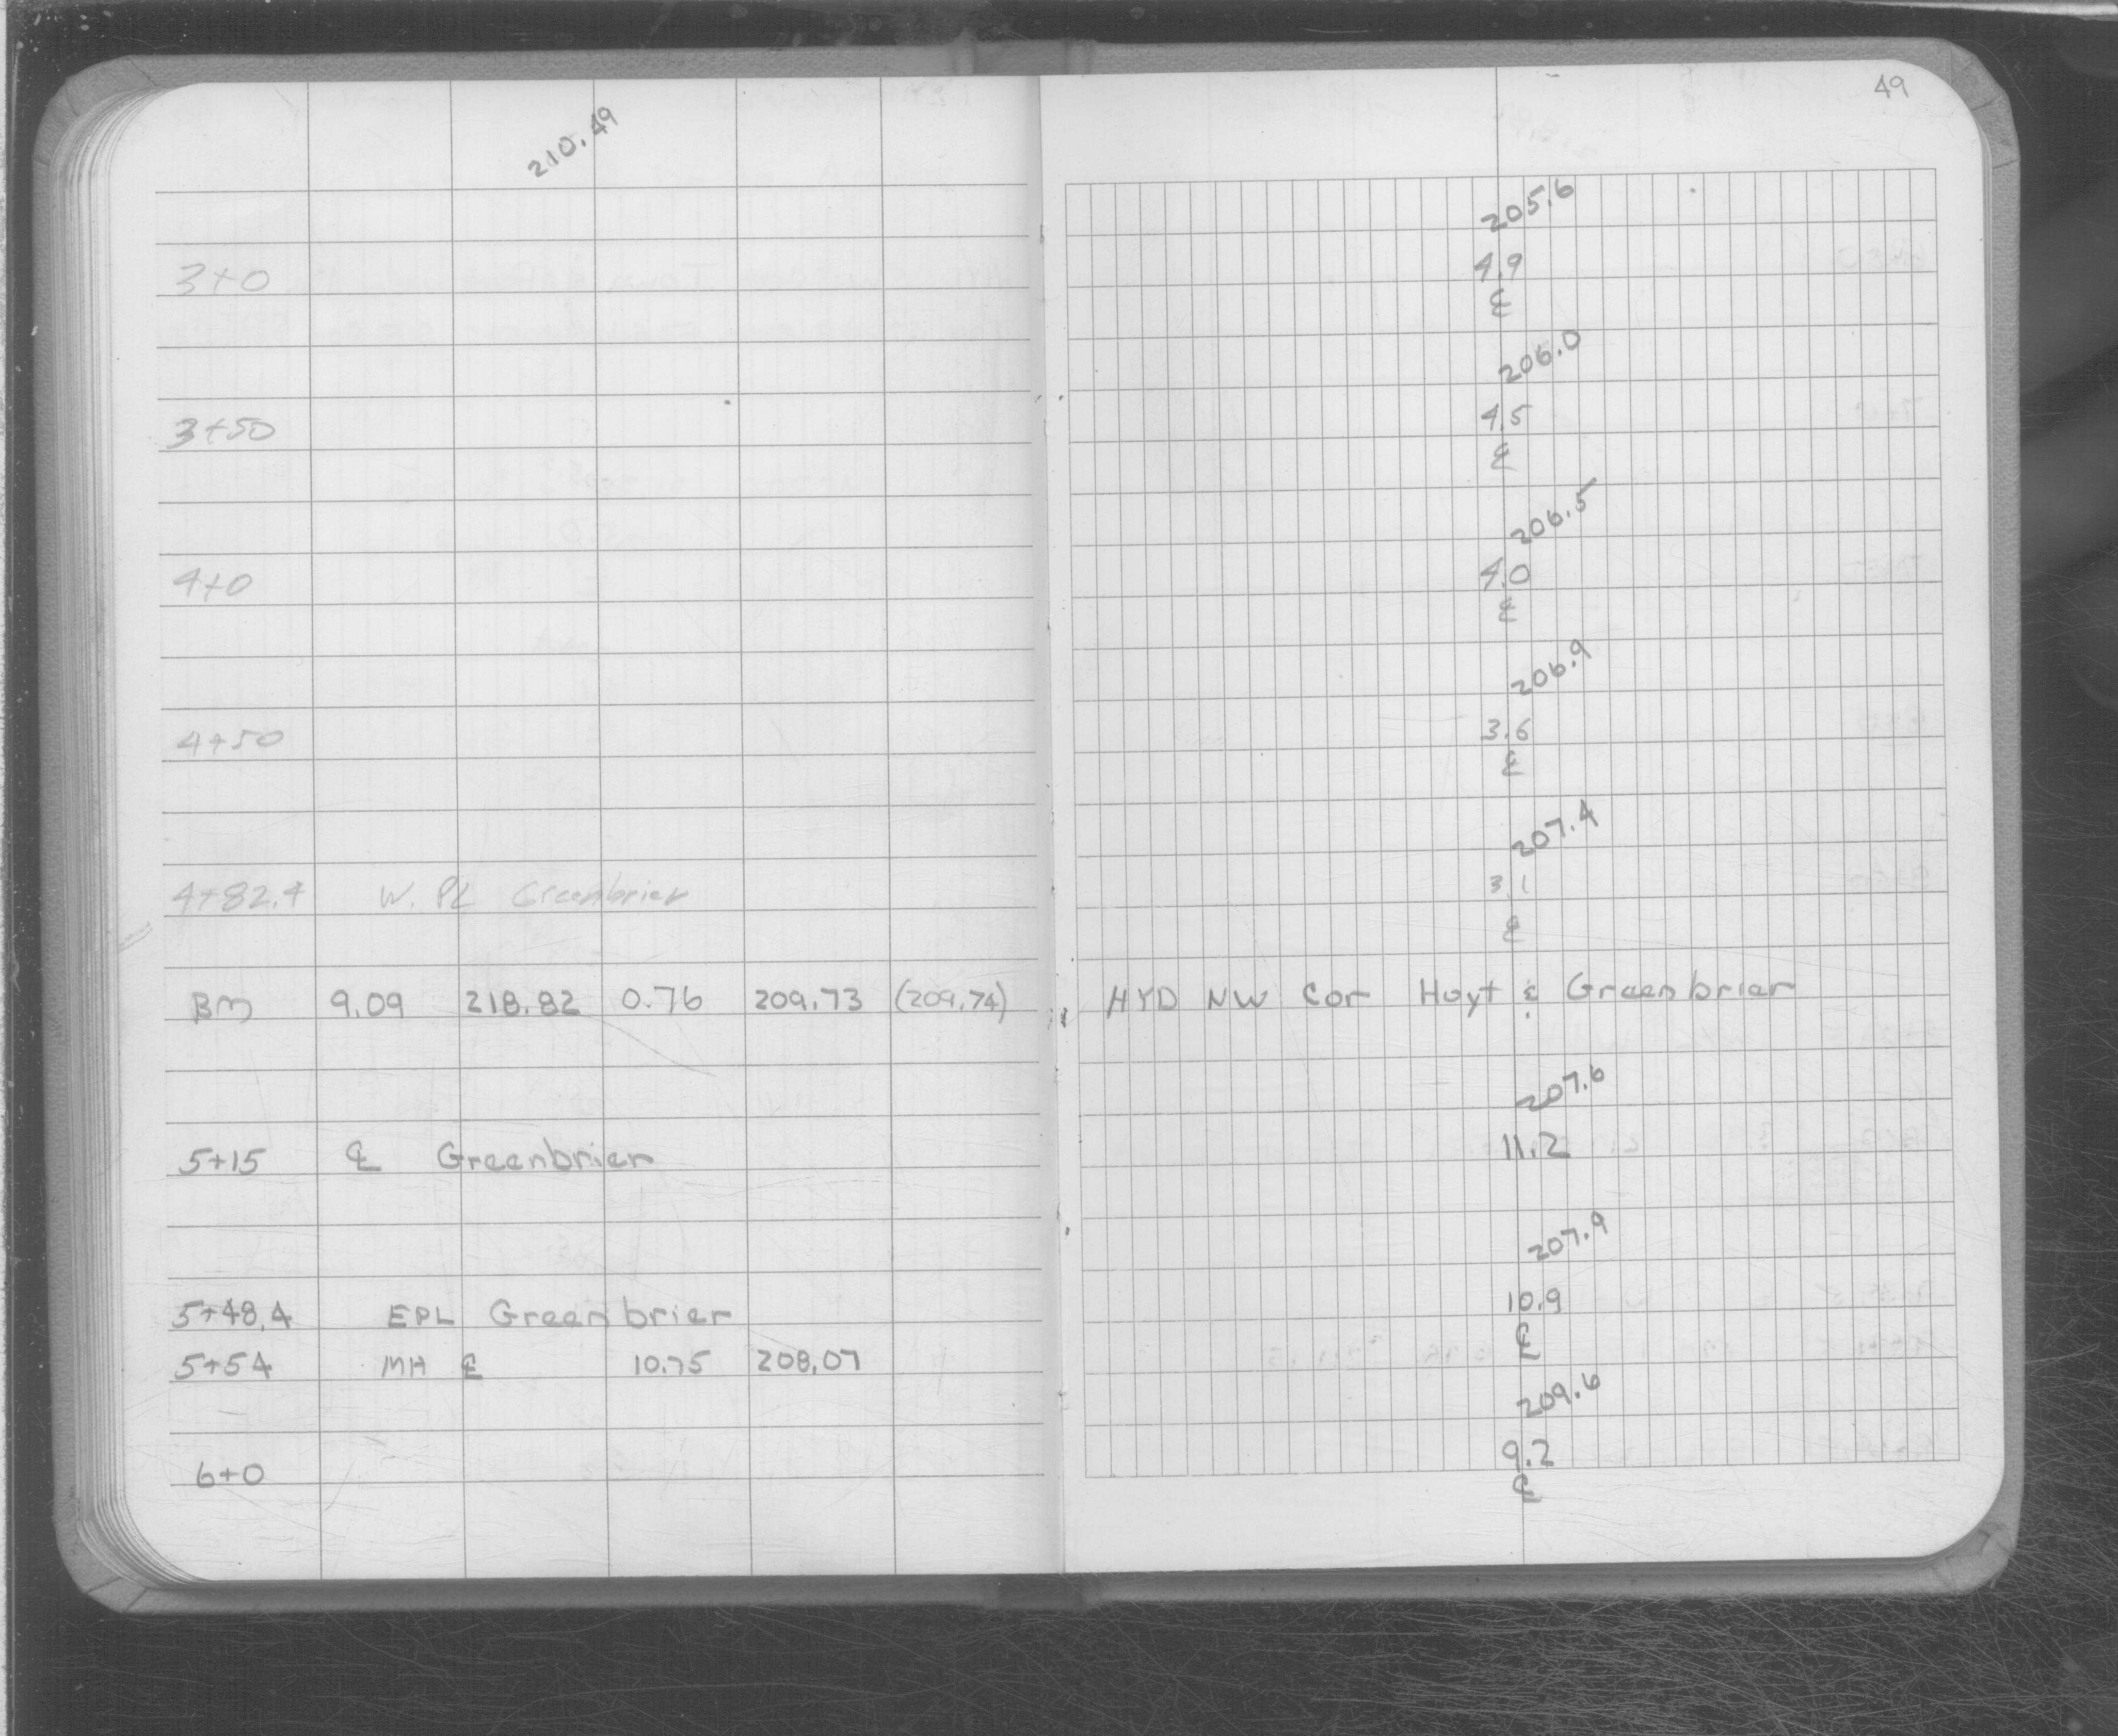 49
210.49
205.6
3+0 4.9
℄
206.0
3+50 4.5
℄
206.5
4+0 4.0
℄
206.9
4+50 3.6
℄
207.4
4+82.4 W. PL Greenbrier 3.1
℄
BM 9.09 218.82 0.76 209.73 (209.74) HYD NW Cor Hoyt & Greenbrier
207.6
5+15 ℄ Greenbrier 11.2
207.9
5+48.4 EPL Greenbrier 10.9
℄
5+54 MH ℄ 10.75 208.07
209.6
6+0 9.2
℄